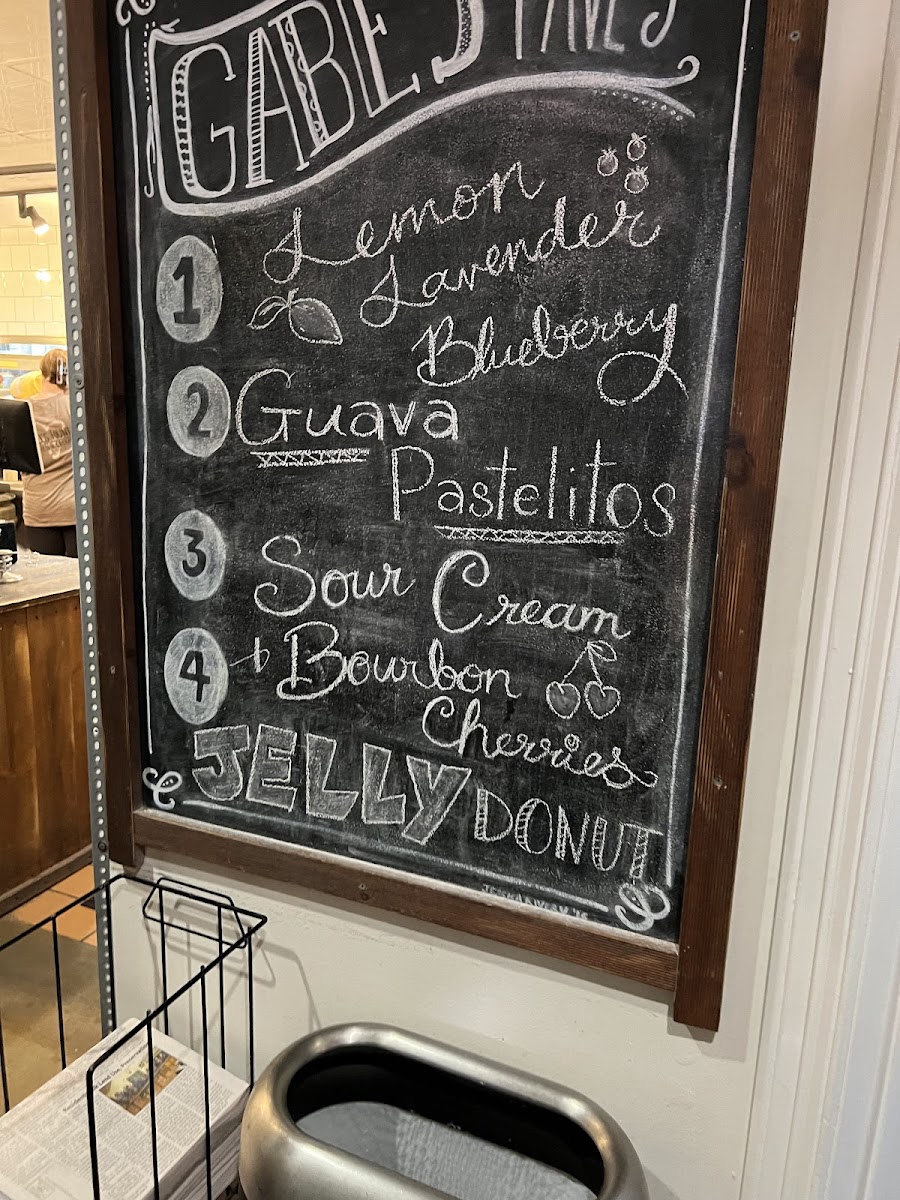 GABE'S FAVE'S
1 Lemon
Lavender
Blueberry
2 Guava
Pastelitos
3 Sour Cream
4 Bourbon
Cherries
JELLY DONUT